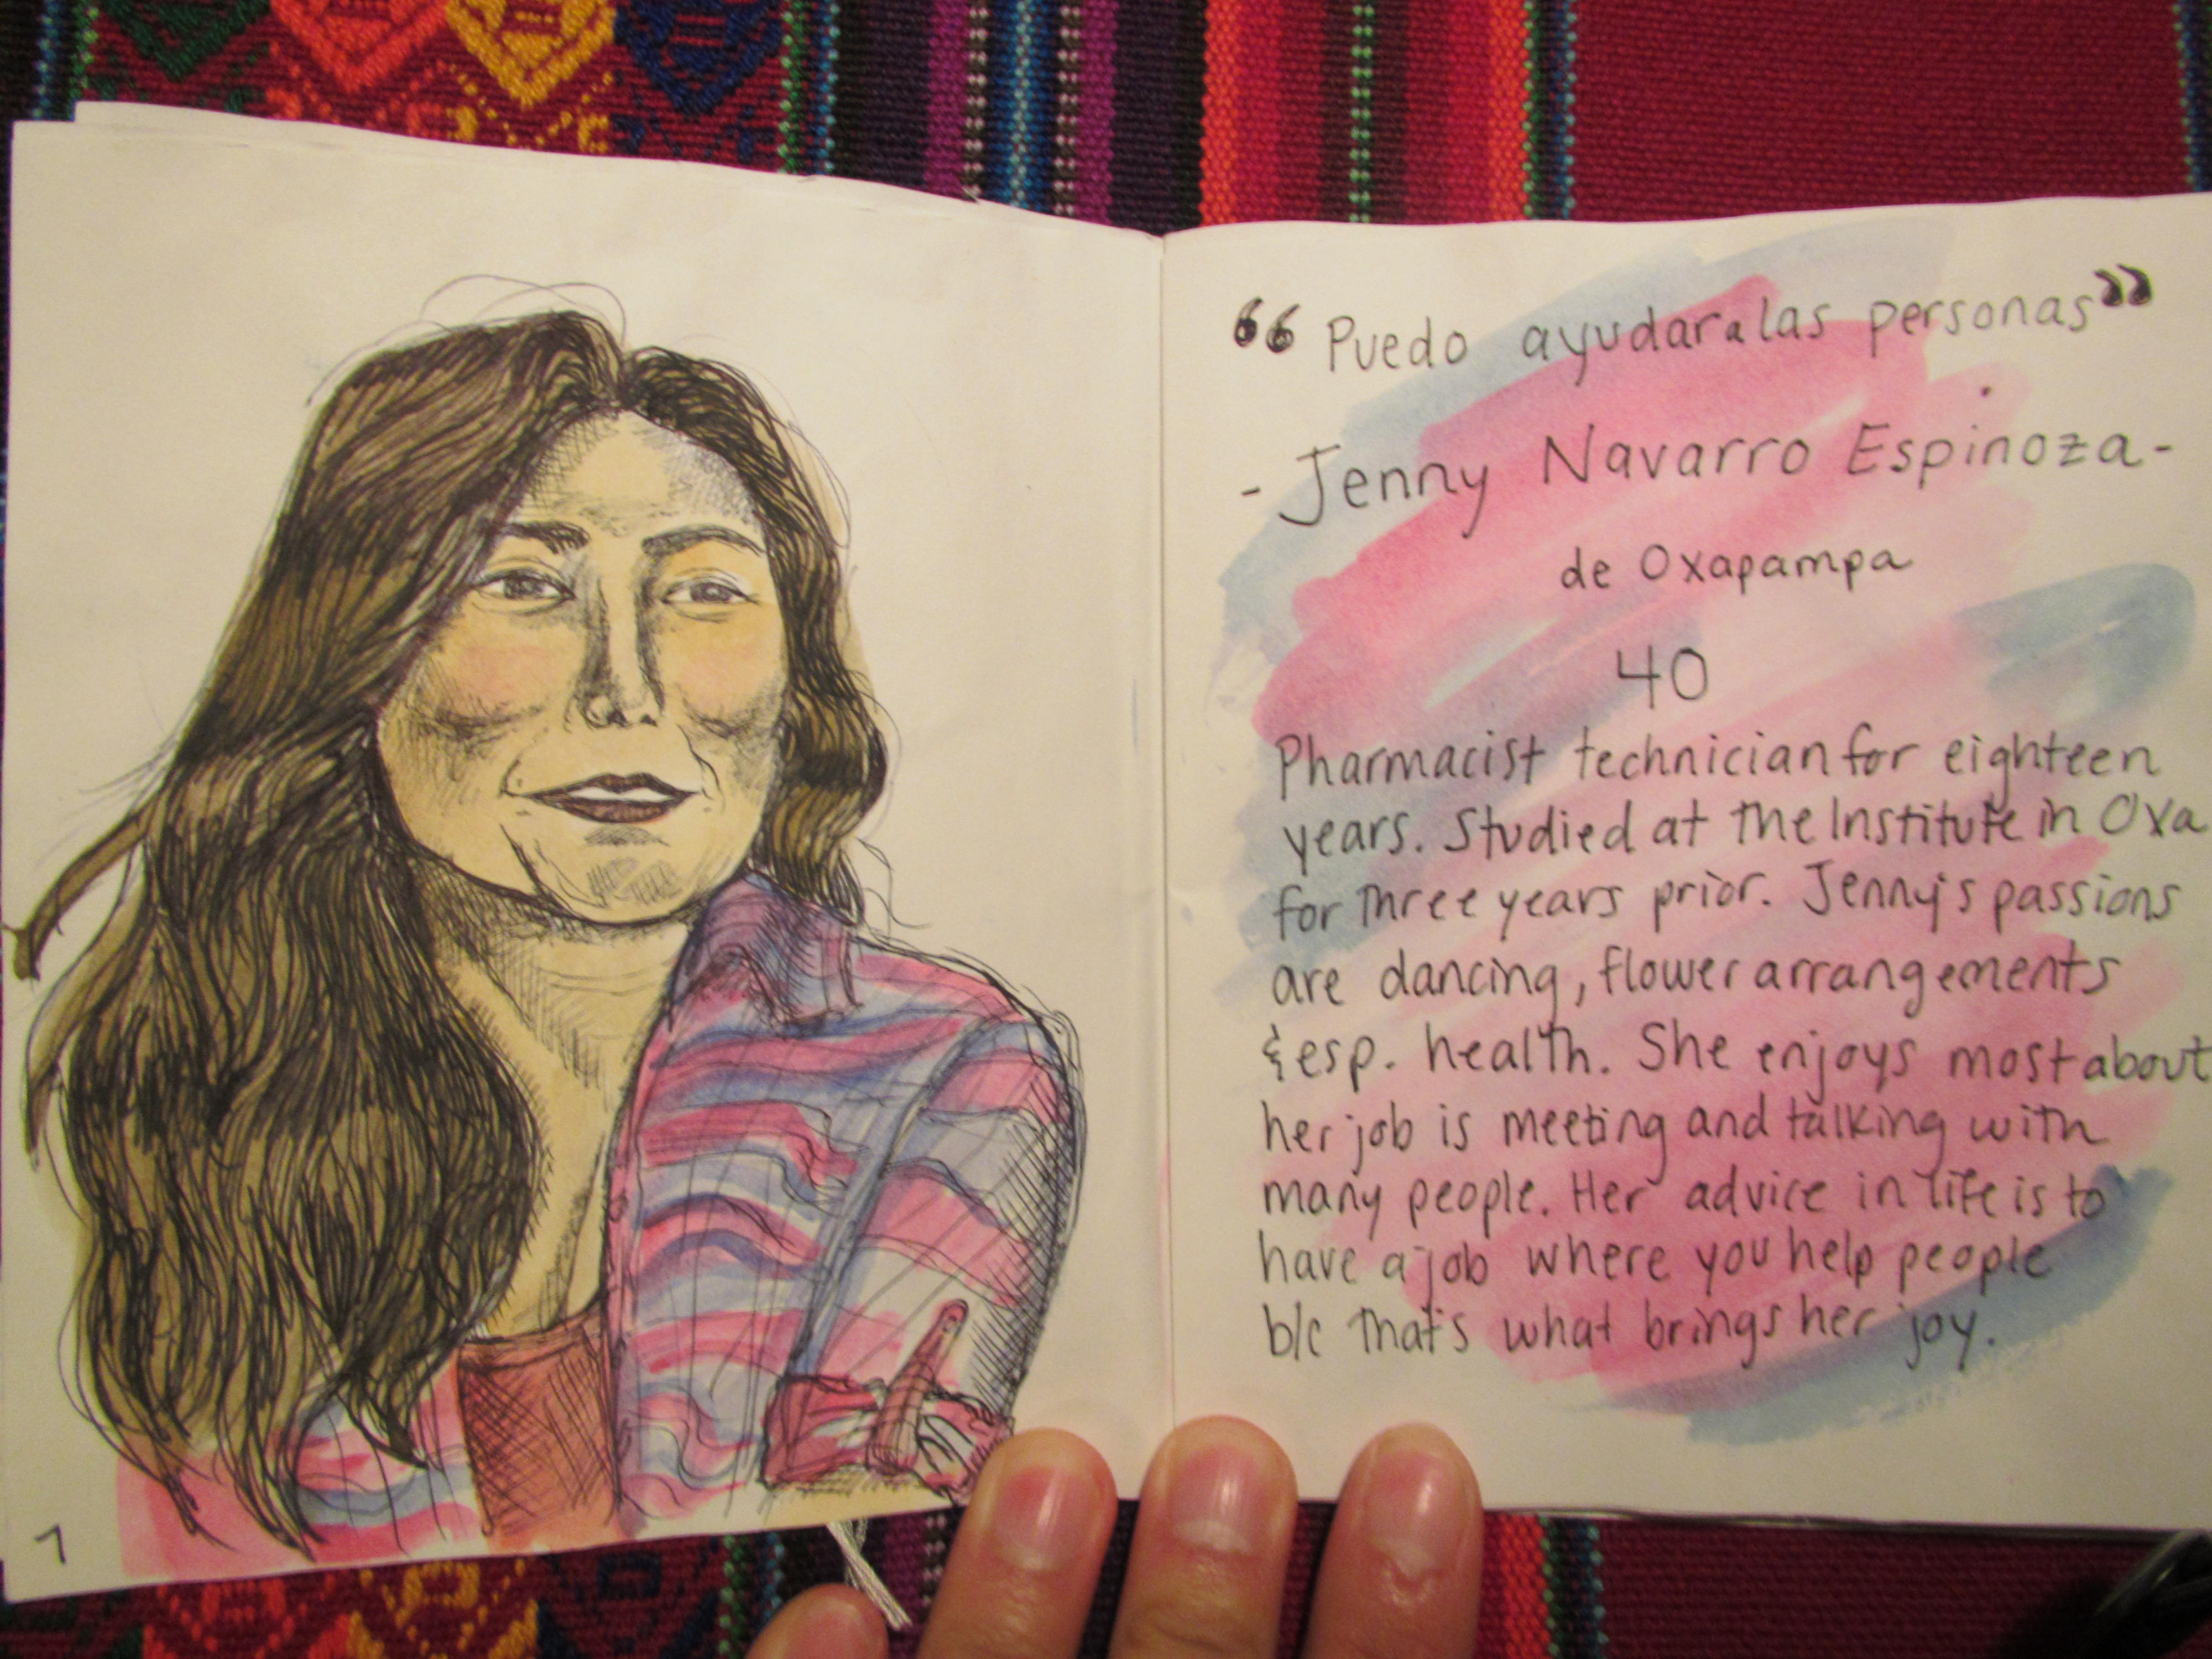 “Puedo ayudar a las personas”
- Jenny Navarro Espinoza -
de Oxapampa
40
Pharmacist technician for eighteen
years. Studied at the Institute in Oxa
for three years prior. Jenny's passions
are dancing, flower arrangements
& esp. health. She enjoys most about
her job is meeting and talking with
many people. Her advice in life is to
have a job where you help people
b/c that's what brings her joy.
7